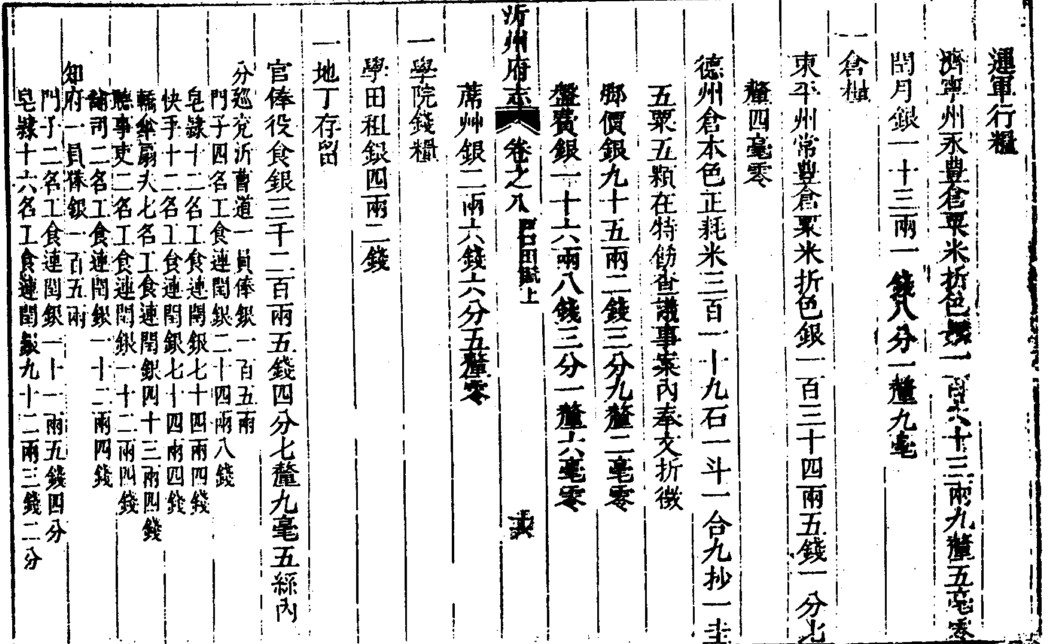 運軍行糧
濟寧州永豐倉粟米折色銀一百六十三兩九釐五毫零
閏月銀一十三兩一錢八分一釐九毫
一倉糧
東平州常豐倉粟米折色銀一百三十四兩五錢一分七
釐四毫零
德州倉本色正耗米三百一十九石一斗一合九抄一圭
五粟五顆在特餙查議事案內奉文折徵
腳價銀九十五兩二錢三分九釐二毫零
盤費銀一十六兩八錢三分一釐六毫零
沂州府志 卷之八 田賦上
蓆艸銀二兩六錢六分五釐零
一學院錢糧
學田租銀四兩二錢
一地丁存留
官俸役食銀三千二百兩五錢四分七釐九毫五絲內
分廵兖沂曹道一員俸銀一百五兩
門子四名工食連閏銀二十四兩八錢
皂隷十二名工食連閏銀七十四兩四錢
快手十二名工食連閏銀七十四兩四錢
轎傘扇夫七名工食連閏銀四十三兩四錢
聽事吏二名工食連閏銀一十二兩四錢
鋪司二名工食連閏銀一十二兩四錢
知府一員俸銀一百五兩
門子二名工食連閏銀一十一兩五錢四分
皂隷十六名工食連閏銀九十二兩三錢二分